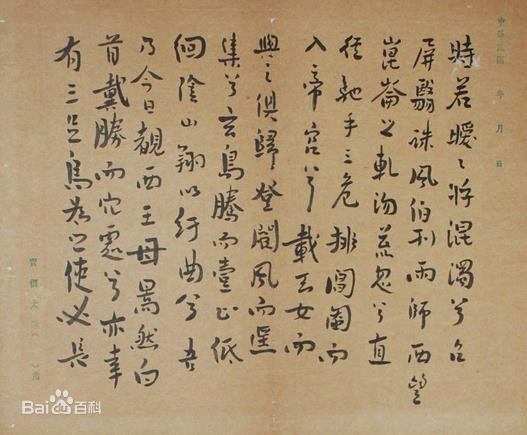 中華民國 年 月 日
時若曖〻將混濁兮召
屏翳誅風伯刑雨師西望
崑崙之軋沕荒忽兮直
徑馳乎三危排閶闔而
入帝宮兮載玉女而
與之俱歸登閬風而遥
集兮亢鳥騰而壹止低
佪陰山翔以紆曲兮吾
乃今日覩西王母暠然白
首戴勝而穴處兮亦幸
有三足烏為之使必長
實價大洋 角
Bai百科